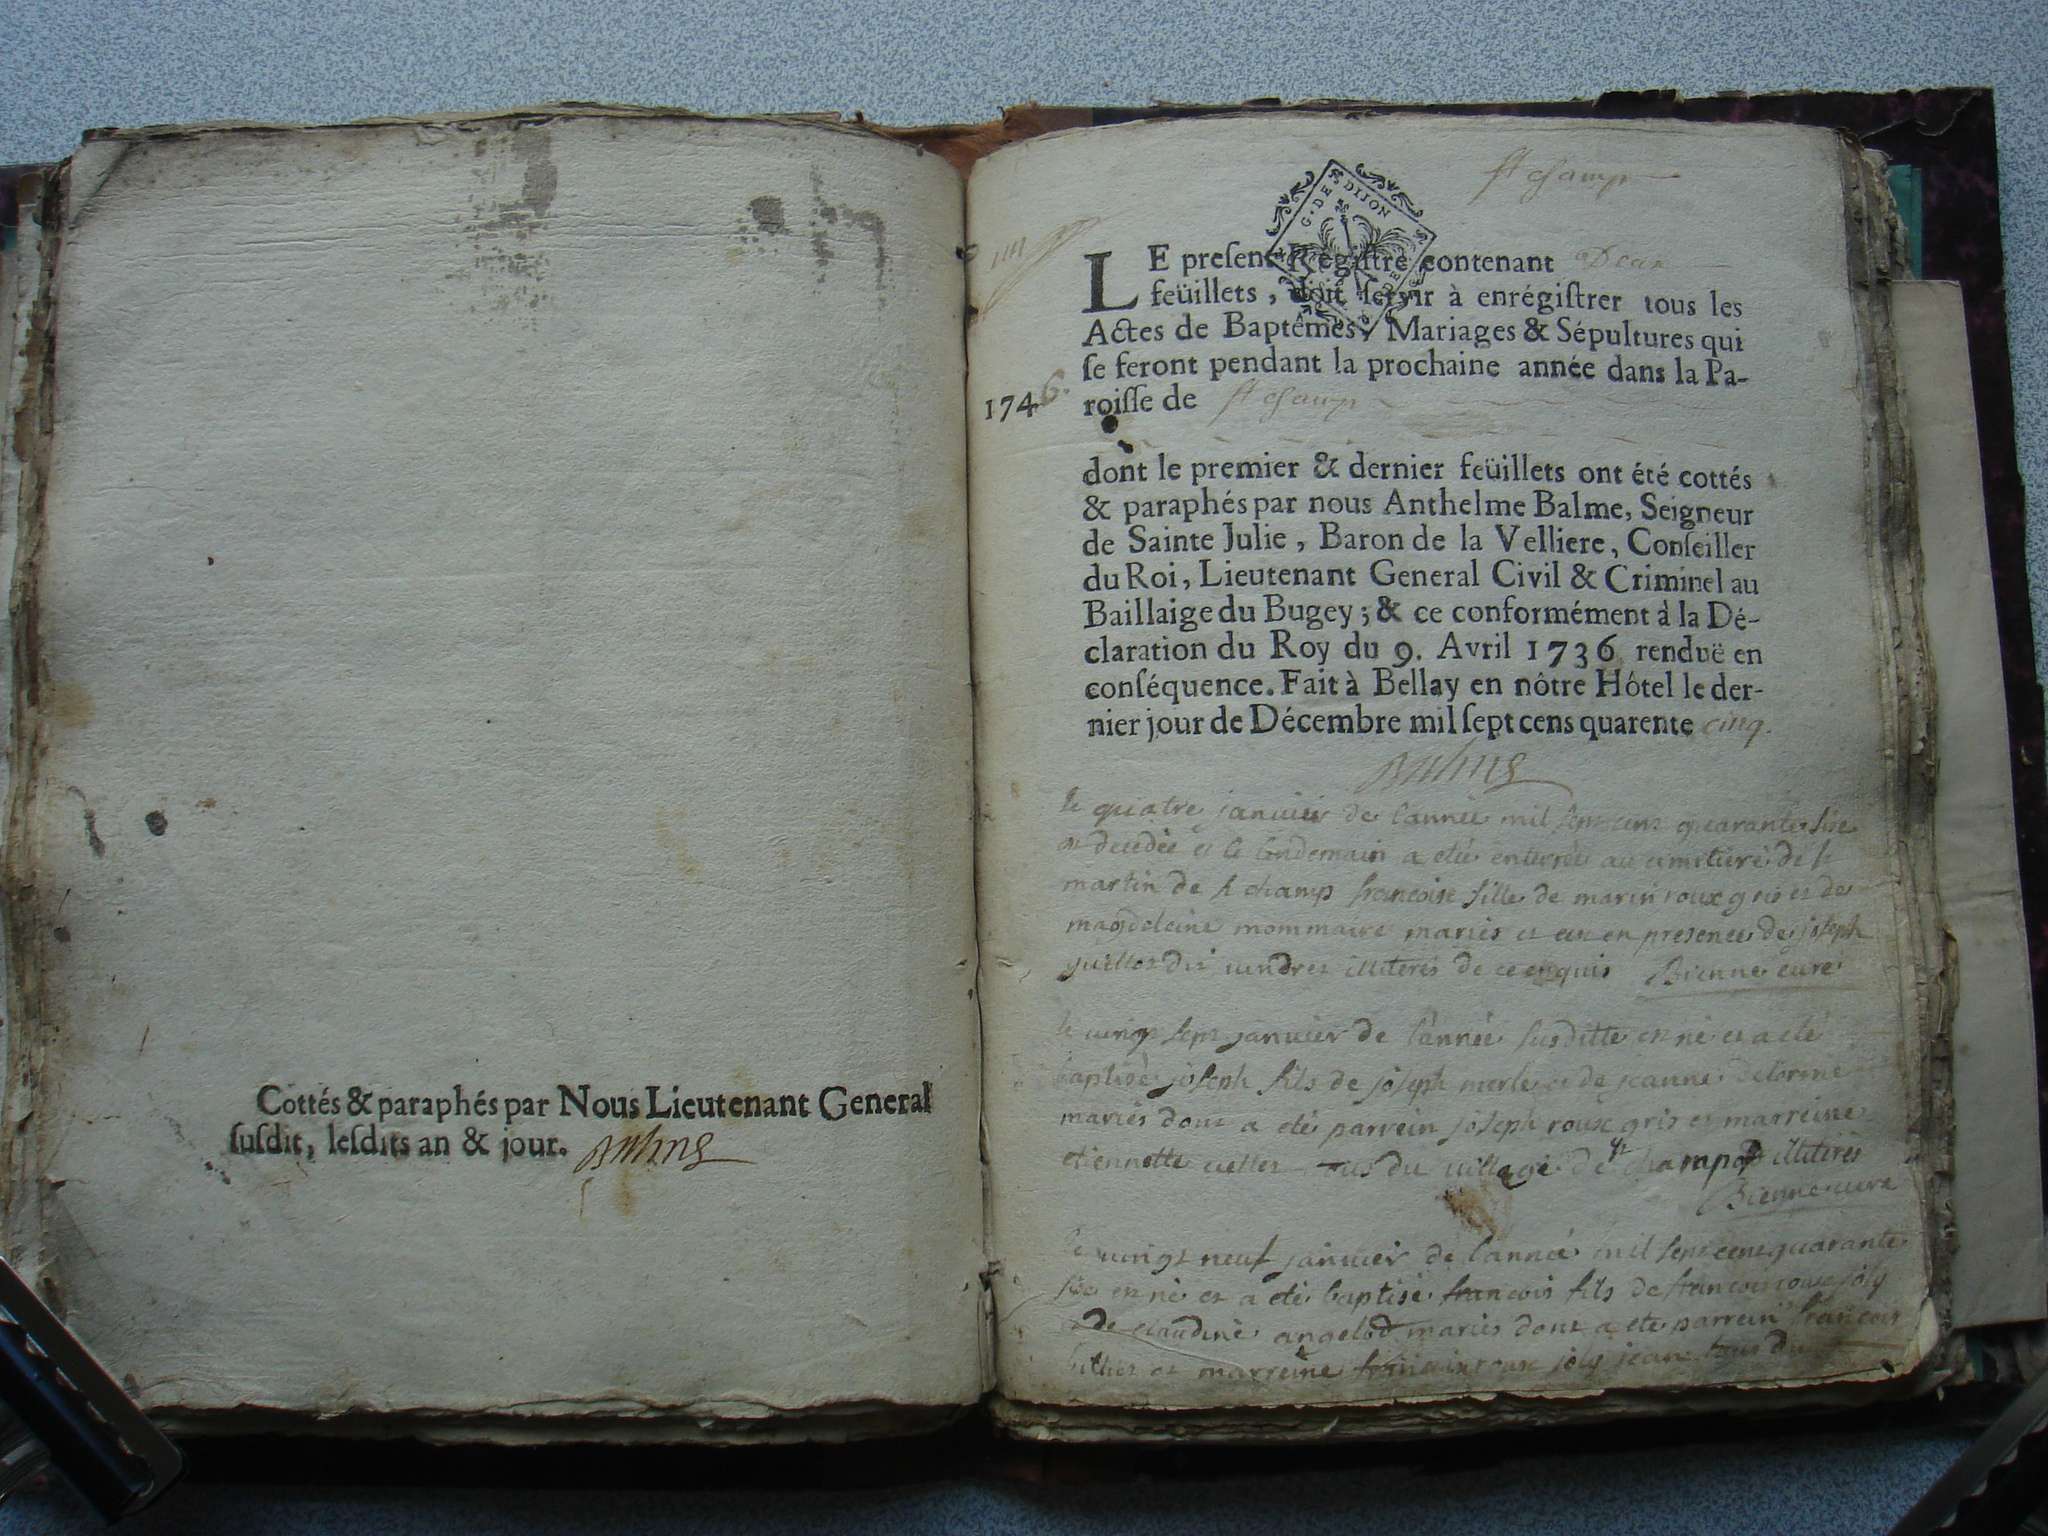 Cottés & paraphés par Nous Lieutenant General
susdit, lesdits an & jour.
st champ
G. DE DIJON
LE present Régistre contenant
feüillets, doit servir à enrégistrer tous les
Actes de Baptêmes, Mariages & Sépultures qui
se feront pendant la prochaine année dans la Pa-
1746.
roisse de st champ
dont le premier & dernier feüillets ont été cottés
& paraphés par nous Anthelme Balme, Seigneur
de Sainte Julie, Baron de la Velliere, Conseiller
du Roi, Lieutenant General Civil & Criminel au
Baillaige du Bugey; & ce conformément à la Dé-
claration du Roy du 9. Avril 1736 renduë en
conséquence. Fait à Bellay en nôtre Hôtel le der-
nier jour de Décembre mil sept cens quarente cinq.
le quatre janvier de l'année mil sept cens quarante six
decedée et le lendemain a eté enterrée au cimetiere de st
martin de st champ francoise fille de marin roux gris et de
magdeleine mommaire mariés et ce en presence de joseph
illiterés de ce enquis Bienne curé
le vingt sept janvier de l'année susditte est né et a eté
baptisé joseph fils de joseph merle et de jeanne delorme
mariés dont a eté parrein joseph roux gris et marreine
etiennette du village de st champ illiterés
Bienne curé
le vingt neuf janvier de l'année mil sept cens quarante
six est né et a eté baptisé francois fils de francois roux joly
de claudine angelot mariés dont a eté parrein francois
et marreine roux joly jean tous du